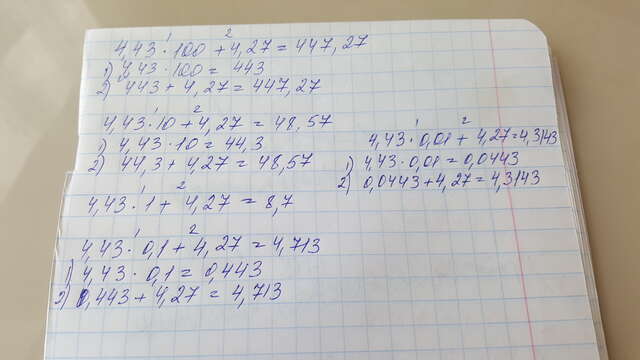 1 2
4,43 · 100 + 4,27 = 447,27
1) 4,43 · 100 = 443
2) 443 + 4,27 = 447,27
1 2
4,43 · 10 + 4,27 = 48,57
1) 4,43 · 10 = 44,3
2) 44,3 + 4,27 = 48,57
1 2
4,43 · 1 + 4,27 = 8,7
1 2
4,43 · 0,1 + 4,27 = 4,713
1) 4,43 · 0,1 = 0,443
2) 0,443 + 4,27 = 4,713
1 2
4,43 · 0,01 + 4,27 = 4,3143
1) 4,43 · 0,01 = 0,0443
2) 0,0443 + 4,27 = 4,3143